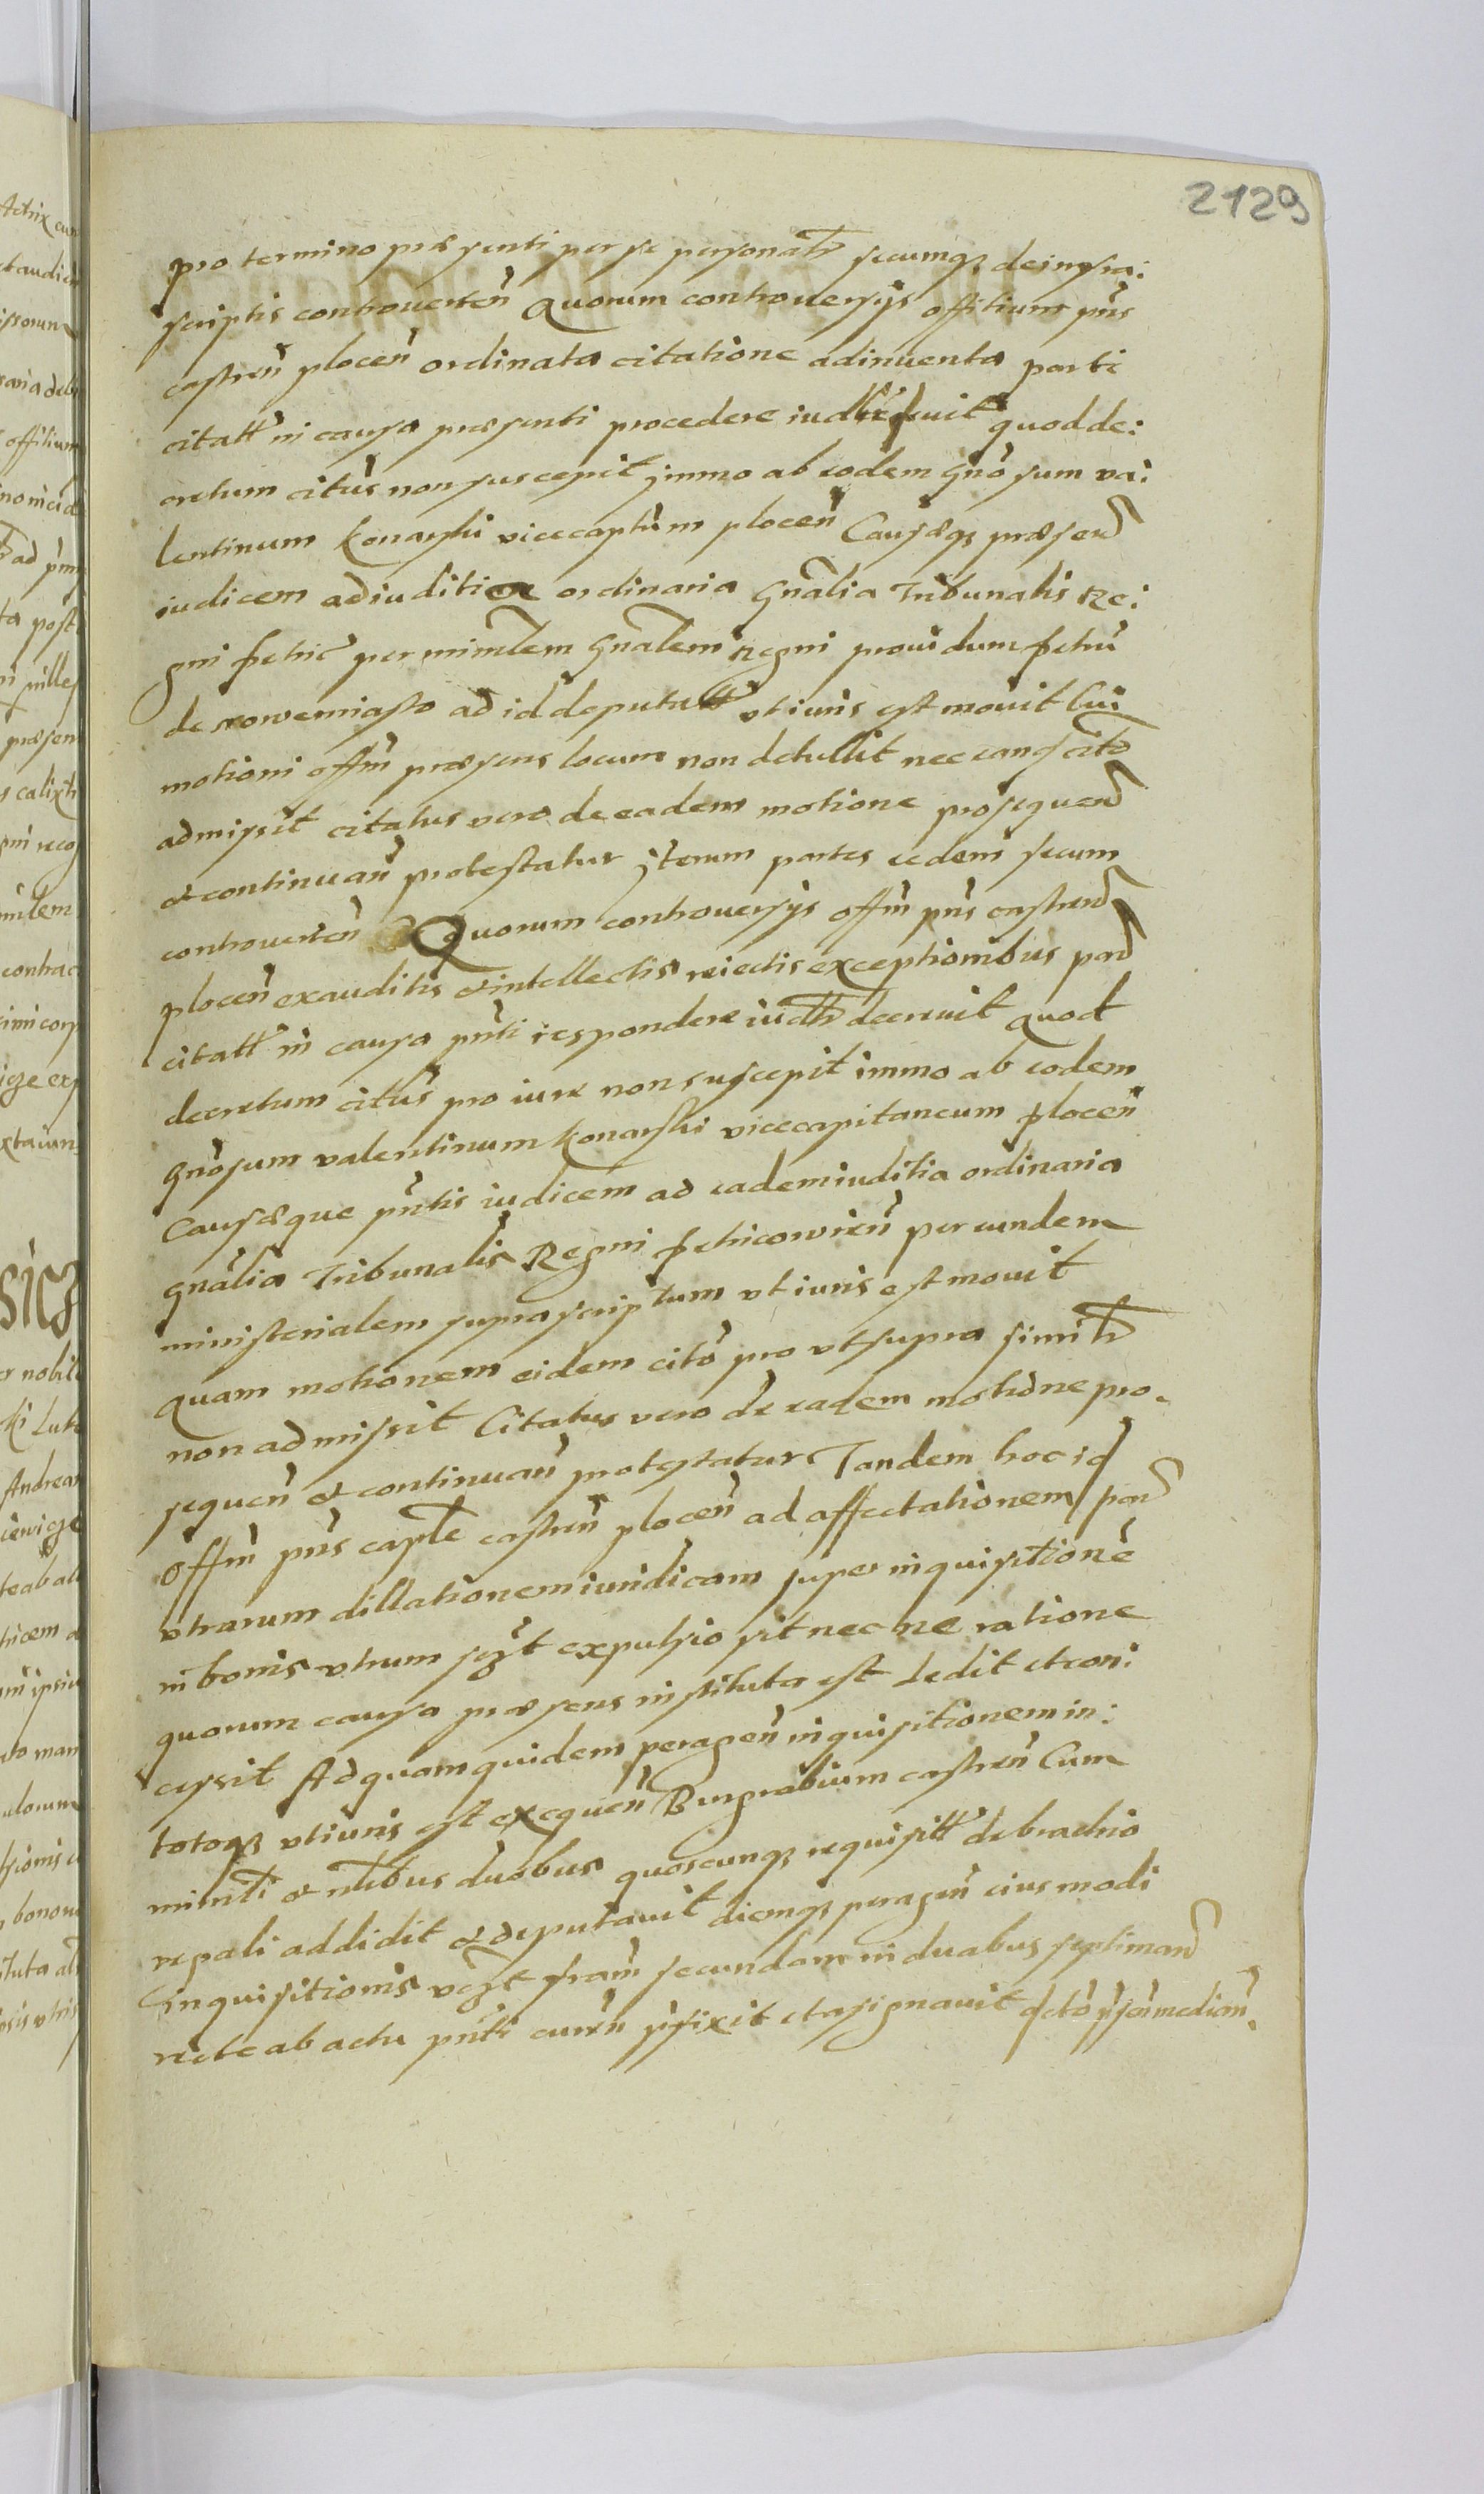 2129
pro termino præsenti per se personalr secumq de infra:
scriptis controverten Quorum controuersijs offitium pns
castren plocen ordinata citatione adinuenta parti
citatt in causa præsenti procedere iudltr quod de:
cretum citus non suscepit immo ab eodem Gnosum va:
lentinum Konarski vicecaptum plocen Causæq præsen
iudicem ad iuditia ordinaria Gnalia Tribunalis Re:
gni petric per minlem Gnalem Regni prouidum petru
de nowemiasto ad id deputatt vt iuris est mouit Cui
motioni offm præsens locum non detullit nec eam cito
admissit citatus vero de eadem motione prosequen
et continuan protestatur iterum partes eedem secum
controverten Quorum controuersijs offm pns castren
plocen exauditis et intellectis reiectis exceptionibus par
citatt in causa pnti respondere iudltr decreuit Quod
decretum citus pro iure non suscepit immo ab eodem
Gnosum valentinum Konarski vicecapitaneum plocen
Causæque pntis iudicem ad eadem iuditia ordinaria
Gnalia Tribunalis Regni petricouien per eundem
ministerialem suprascriptum vt iuris est mouit
Quam motionem eidem cito pro vt supra similr
non admissit Citatus vero de eadem motione pro
sequen et continuan protestatur Tandem hoc id
Offm pns caple castren plocen ad affectationem par
vtrarum dillationem iuridicam super inquisitione
in bonis vtrum sczt expulsio sit nec ne ratione
quorum causa præsens instituta est dedit et con:
cessit Ad quam quidem peragen inquisitionem in:
totoq vt iuris est exequen Burgrabium castren Cum
minlri et nlibus duobus quoscunq requisitt de brachio
regali addidit et deputauit diemq peragen eiusmodi
inquisitionis vczt feram secundam in duabus septiman
recte ab actu pnti curen pfixit et asignauit